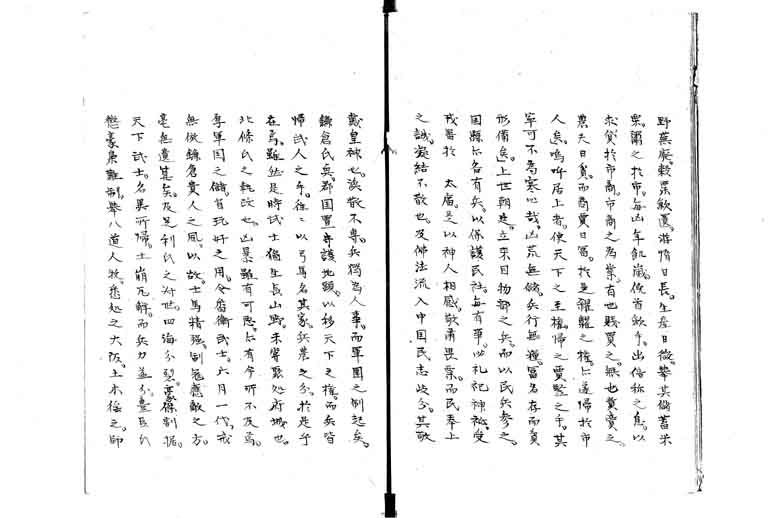 野蕪廢。穀粟歉匱。游惰日長。生産日微。擧其儲蓄米
粟鬻之於市。每凶年飢歳。俛首歛手。出倍称之息。以
求貸於市商。市商之為業。有也賤買之。無也貴賣之。
農夫日貧。而商賈日冨。於是糴糶之権。亦遂帰於市
人矣。嗚呼居上者。使天下之至権。帰之賈豎之手。其
寧可不為寒心哉。凶荒無儲。兵行無糧。冨名存而貧
形備矣。上世朝廷。立来目物部之兵。而以民兵参之。
国縣亦各有兵。以保護民社。每有事。必礼祀神祗。受
戎器於 太廟。是以神人相感。敬肅畏栗。而民奉上
之誠。凝結不散也。及佛法流入中国。民志岐分。其敬
戴皇神也。誠敬不專。兵獨為人事。而軍国之制起矣。
鎌倉氏興。郡国置守護地頭。以移天下之権。而兵皆
帰武人之手。往々以弓馬名其家。兵農之分。於是乎
在焉。雖然是時武士猶生長山野。未嘗聚処府城也。
北條氏之執政也。凶暴雖有可悪。亦有今所不及焉。
軍国之儲。省玩好之用。令番衛武士。六月一代。戒
無倣鎌倉貴人之風。以故士馬精强。制冦應敵之方。
毫無遺算矣。及足利氏之為世。四海分裂。豪傑割据。
天下武士。各異所帰。土崩瓦解。而兵力益分。豊臣氏
懲豪傑難制。擧八道人牧。悉処之大阪。土木征之師